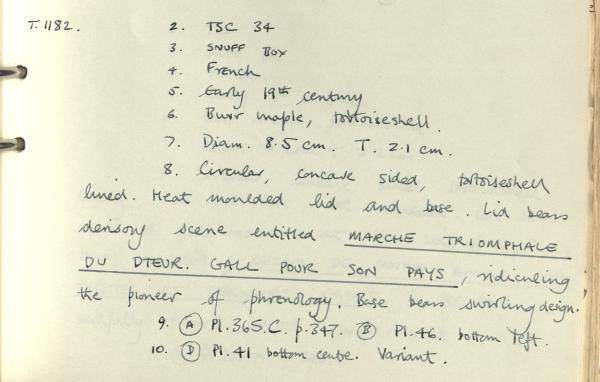 T. 1182. 2. TSC 34
3. SNUFF BOX
4. French
5. Early 19th century
6. Burr maple, tortoiseshell.
7. Diam. 8.5 cm. T. 2.1 cm.
8. Circular, concave sided, tortoiseshell
lined. Heat moulded lid and base. Lid bears
derisory scene entitled MARCHE TRIOMPHALE
DU DTEUR. GALL POUR SON PAYS, ridiculing
the pioneer of phrenology. Base bears swirling design.
9. (A) Pl. 365.C. p.347. (B) Pl.46. bottom left.
10. (D) Pl.41 bottom centre. Variant.